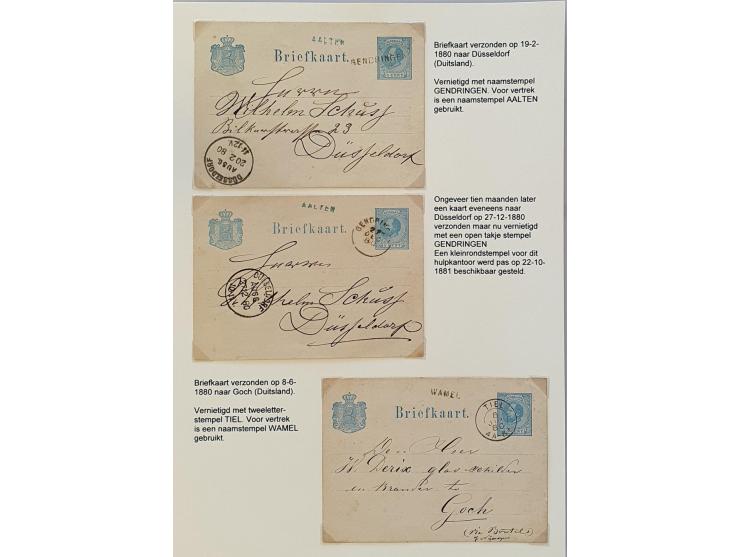 AALTEN
Briefkaart.
GENDRINGEN
Herrn
Wilhelm Schuss
23
Düsseldorf
DÜSSELDORF
AUSG.
20 2 80
11-12V.
Briefkaart verzonden op 19-2-
1880 naar Düsseldorf
(Duitsland).
Vernietigd met naamstempel
GENDRINGEN. Voor vertrek
is een naamstempel AALTEN
gebruikt.
AALTEN
Briefkaart.
Wilhelm Schuss
Düsseldorf
DÜSSELDORF
Ongeveer tien maanden later
een kaart eveneens naar
Düsseldorf op 27-12-1880
verzonden maar nu vernietigd
met een open takje stempel
GENDRINGEN
Een kleinrondstempel voor dit
hulpkantoor werd pas op 22-10-
1881 beschikbaar gesteld.
Briefkaart verzonden op 8-6-
1880 naar Goch (Duitsland).
Vernietigd met tweeletter-
stempel TIEL. Voor vertrek
is een naamstempel WAMEL
gebruikt.
WAMEL
Briefkaart.
TIEL
Den Heer
W. Derix glas-schilder
en brander te
Goch